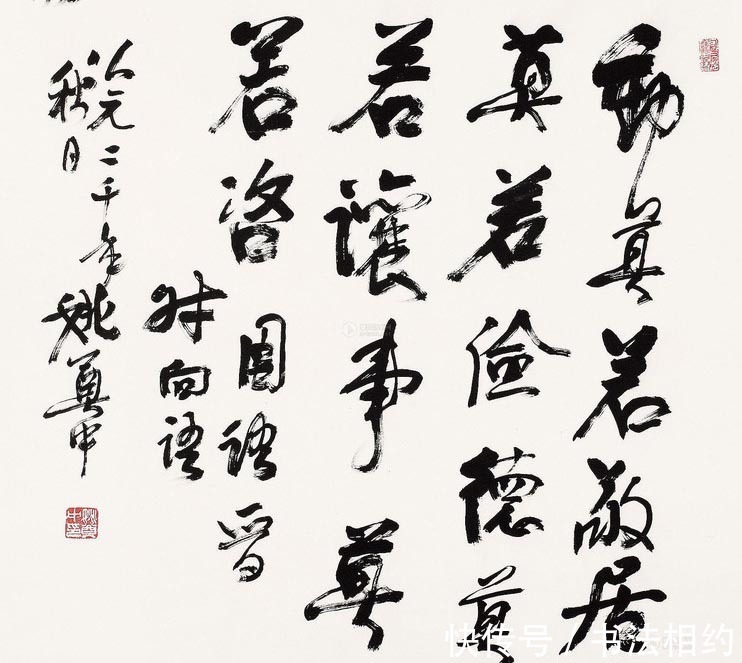 動莫若敬居
莫若儉德莫
若讓事莫
若咨 國語晋
叔向語
公元二千年
秋月 姚奠中
快传号 / 书法相约